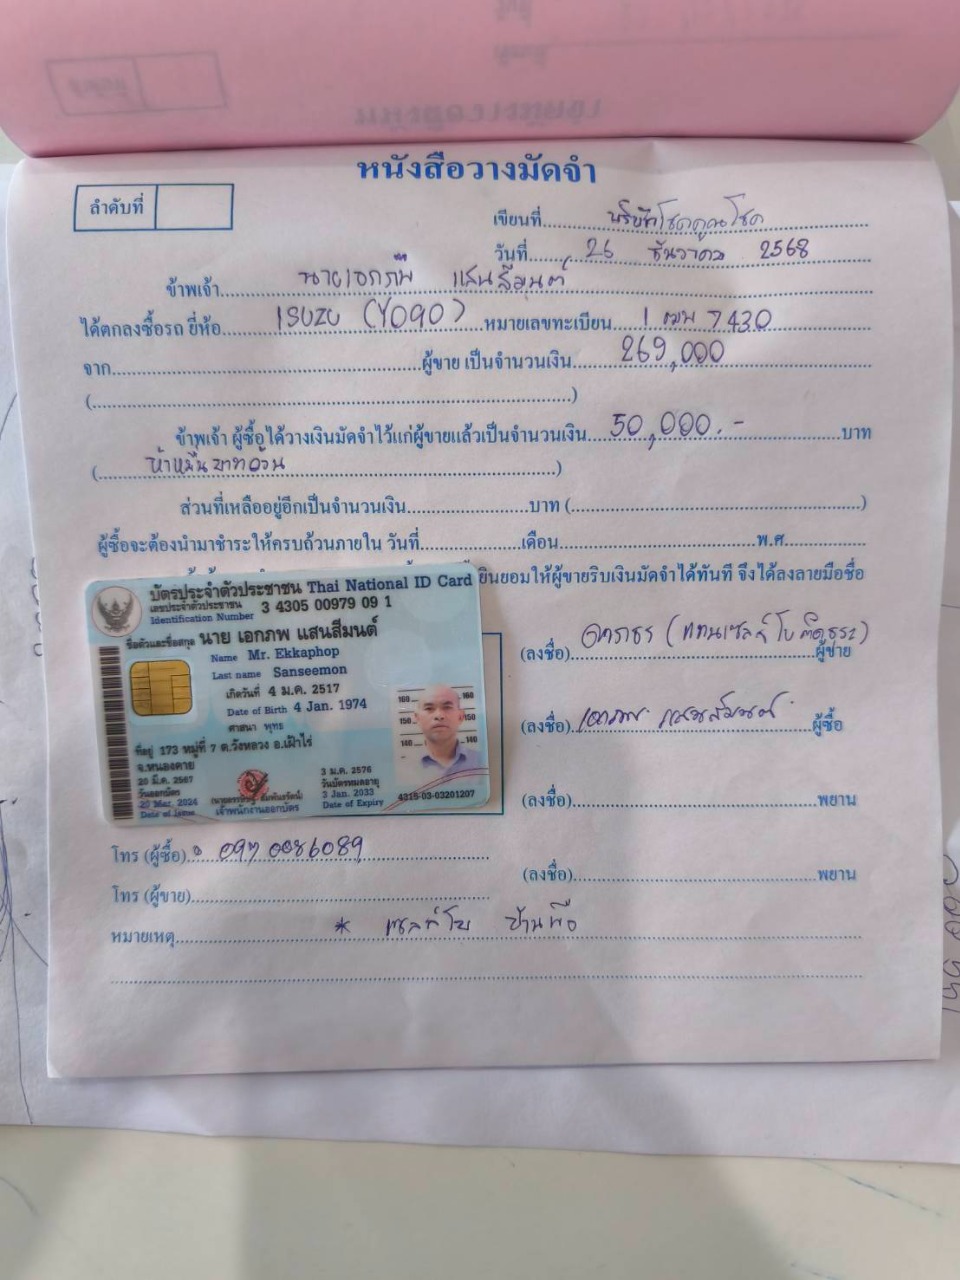 หนังสือวางมัดจำ
ลำดับที่
เขียนที่ บริษัทโชคคูณโชค
วันที่ 26 ธันวาคม 2568
ข้าพเจ้า นายเอกภพ แสนสีมนต์
ได้ตกลงซื้อรถ ยี่ห้อ ISUZU (YO90) หมายเลขทะเบียน 1 ฒฆ 7430
จาก ผู้ขาย เป็นจำนวนเงิน 269,000
( )
ข้าพเจ้า ผู้ซื้อได้วางเงินมัดจำไว้แก่ผู้ขายแล้วเป็นจำนวนเงิน 50,000.- บาท
( ห้าหมื่นบาทถ้วน )
ส่วนที่เหลืออยู่อีกเป็นจำนวนเงิน บาท ( )
ผู้ซื้อจะต้องนำมาชำระให้ครบถ้วนภายใน วันที่ เดือน พ.ศ.
ยินยอมให้ผู้ขายริบเงินมัดจำได้ทันที จึงได้ลงลายมือชื่อ
บัตรประจำตัวประชาชน Thai National ID Card
เลขประจำตัวประชาชน 3 4305 00979 09 1
Identification Number
ชื่อตัวและชื่อสกุล นาย เอกภพ แสนสีมนต์
Name Mr. Ekkaphop
Last name Sanseemon
เกิดวันที่ 4 ม.ค. 2517
Date of Birth 4 Jan. 1974
ศาสนา พุทธ
ที่อยู่ 173 หมู่ที่ 7 ต.วังหลวง อ.เฝ้าไร่
จ.หนองคาย
20 มี.ค. 2567
วันออกบัตร
20 Mar. 2024
Date of Issue
เจ้าพนักงานออกบัตร
3 ม.ค. 2576
วันบัตรหมดอายุ
3 Jan. 2033
Date of Expiry
160 160
150 150
140 140
4315-03-03201207
(ลงชื่อ) ผู้ขาย
(ลงชื่อ) เอกภพ แสนสีมนต์ ผู้ซื้อ
(ลงชื่อ) พยาน
โทร (ผู้ซื้อ) 097 0086089
(ลงชื่อ) พยาน
โทร (ผู้ขาย)
หมายเหตุ * เซลล์โบ บ้านผือ